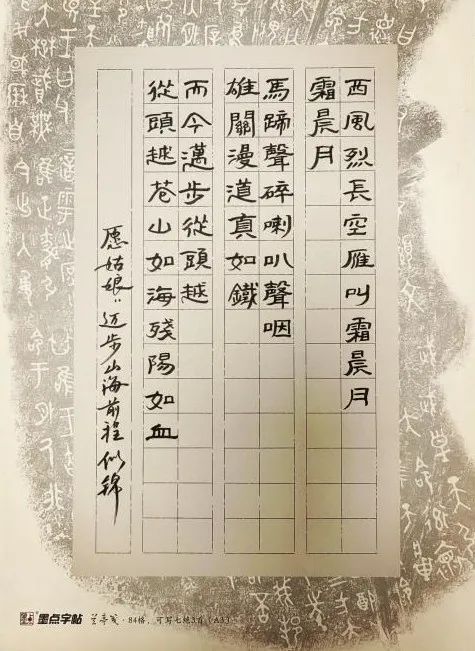 西風烈長空雁叫霜晨月
霜晨月
馬蹄聲碎喇叭聲咽
雄關漫道真如鐵
而今邁步從頭越
從頭越苍山如海殘陽如血
愿姑娘：迈步山海前程似锦
墨点字帖 84格，可写七绝3首（A3）